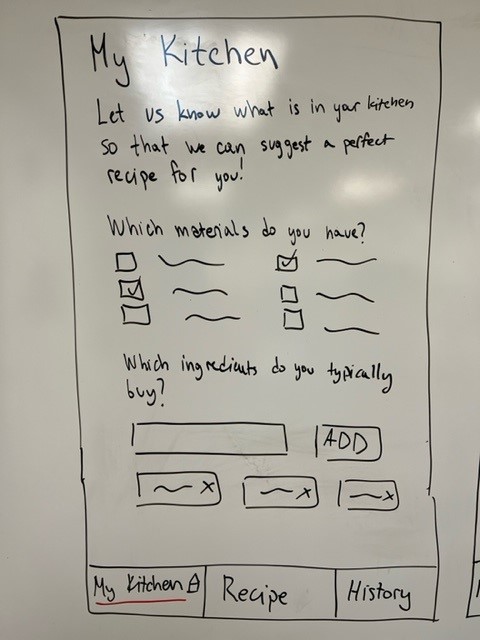 My Kitchen
Let us know what is in your kitchen
so that we can suggest a perfect
recipe for you!
Which materials do you have?
Which ingredients do you typically
buy?
ADD
x x x
My Kitchen Recipe History